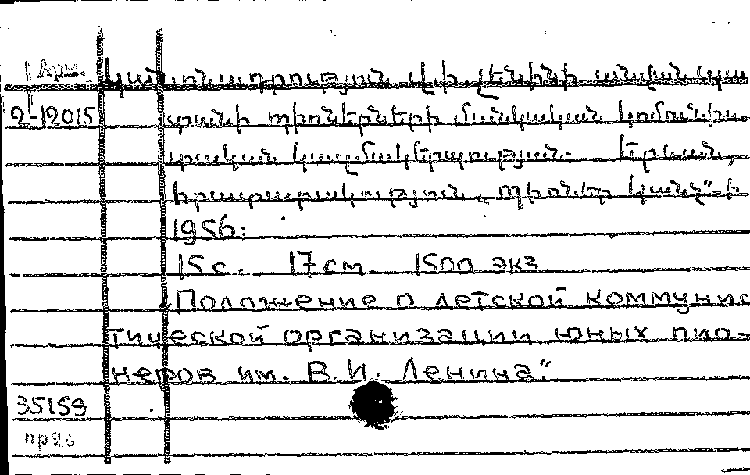 Арм. Կանոնադրություն Վ.Ի. Լենինի անվան պա
2-12015 տանի պիոներների մանկական կոմունիս
տական կազմակերպության. Երևան,
հրատարակություն „ պիոներ կանչ"-ի
1956:
15 с. 17 см. 1500 экз
„Положение о детской коммунис
тической организации юных пио-
неров им. В.И. Ленина".
35159